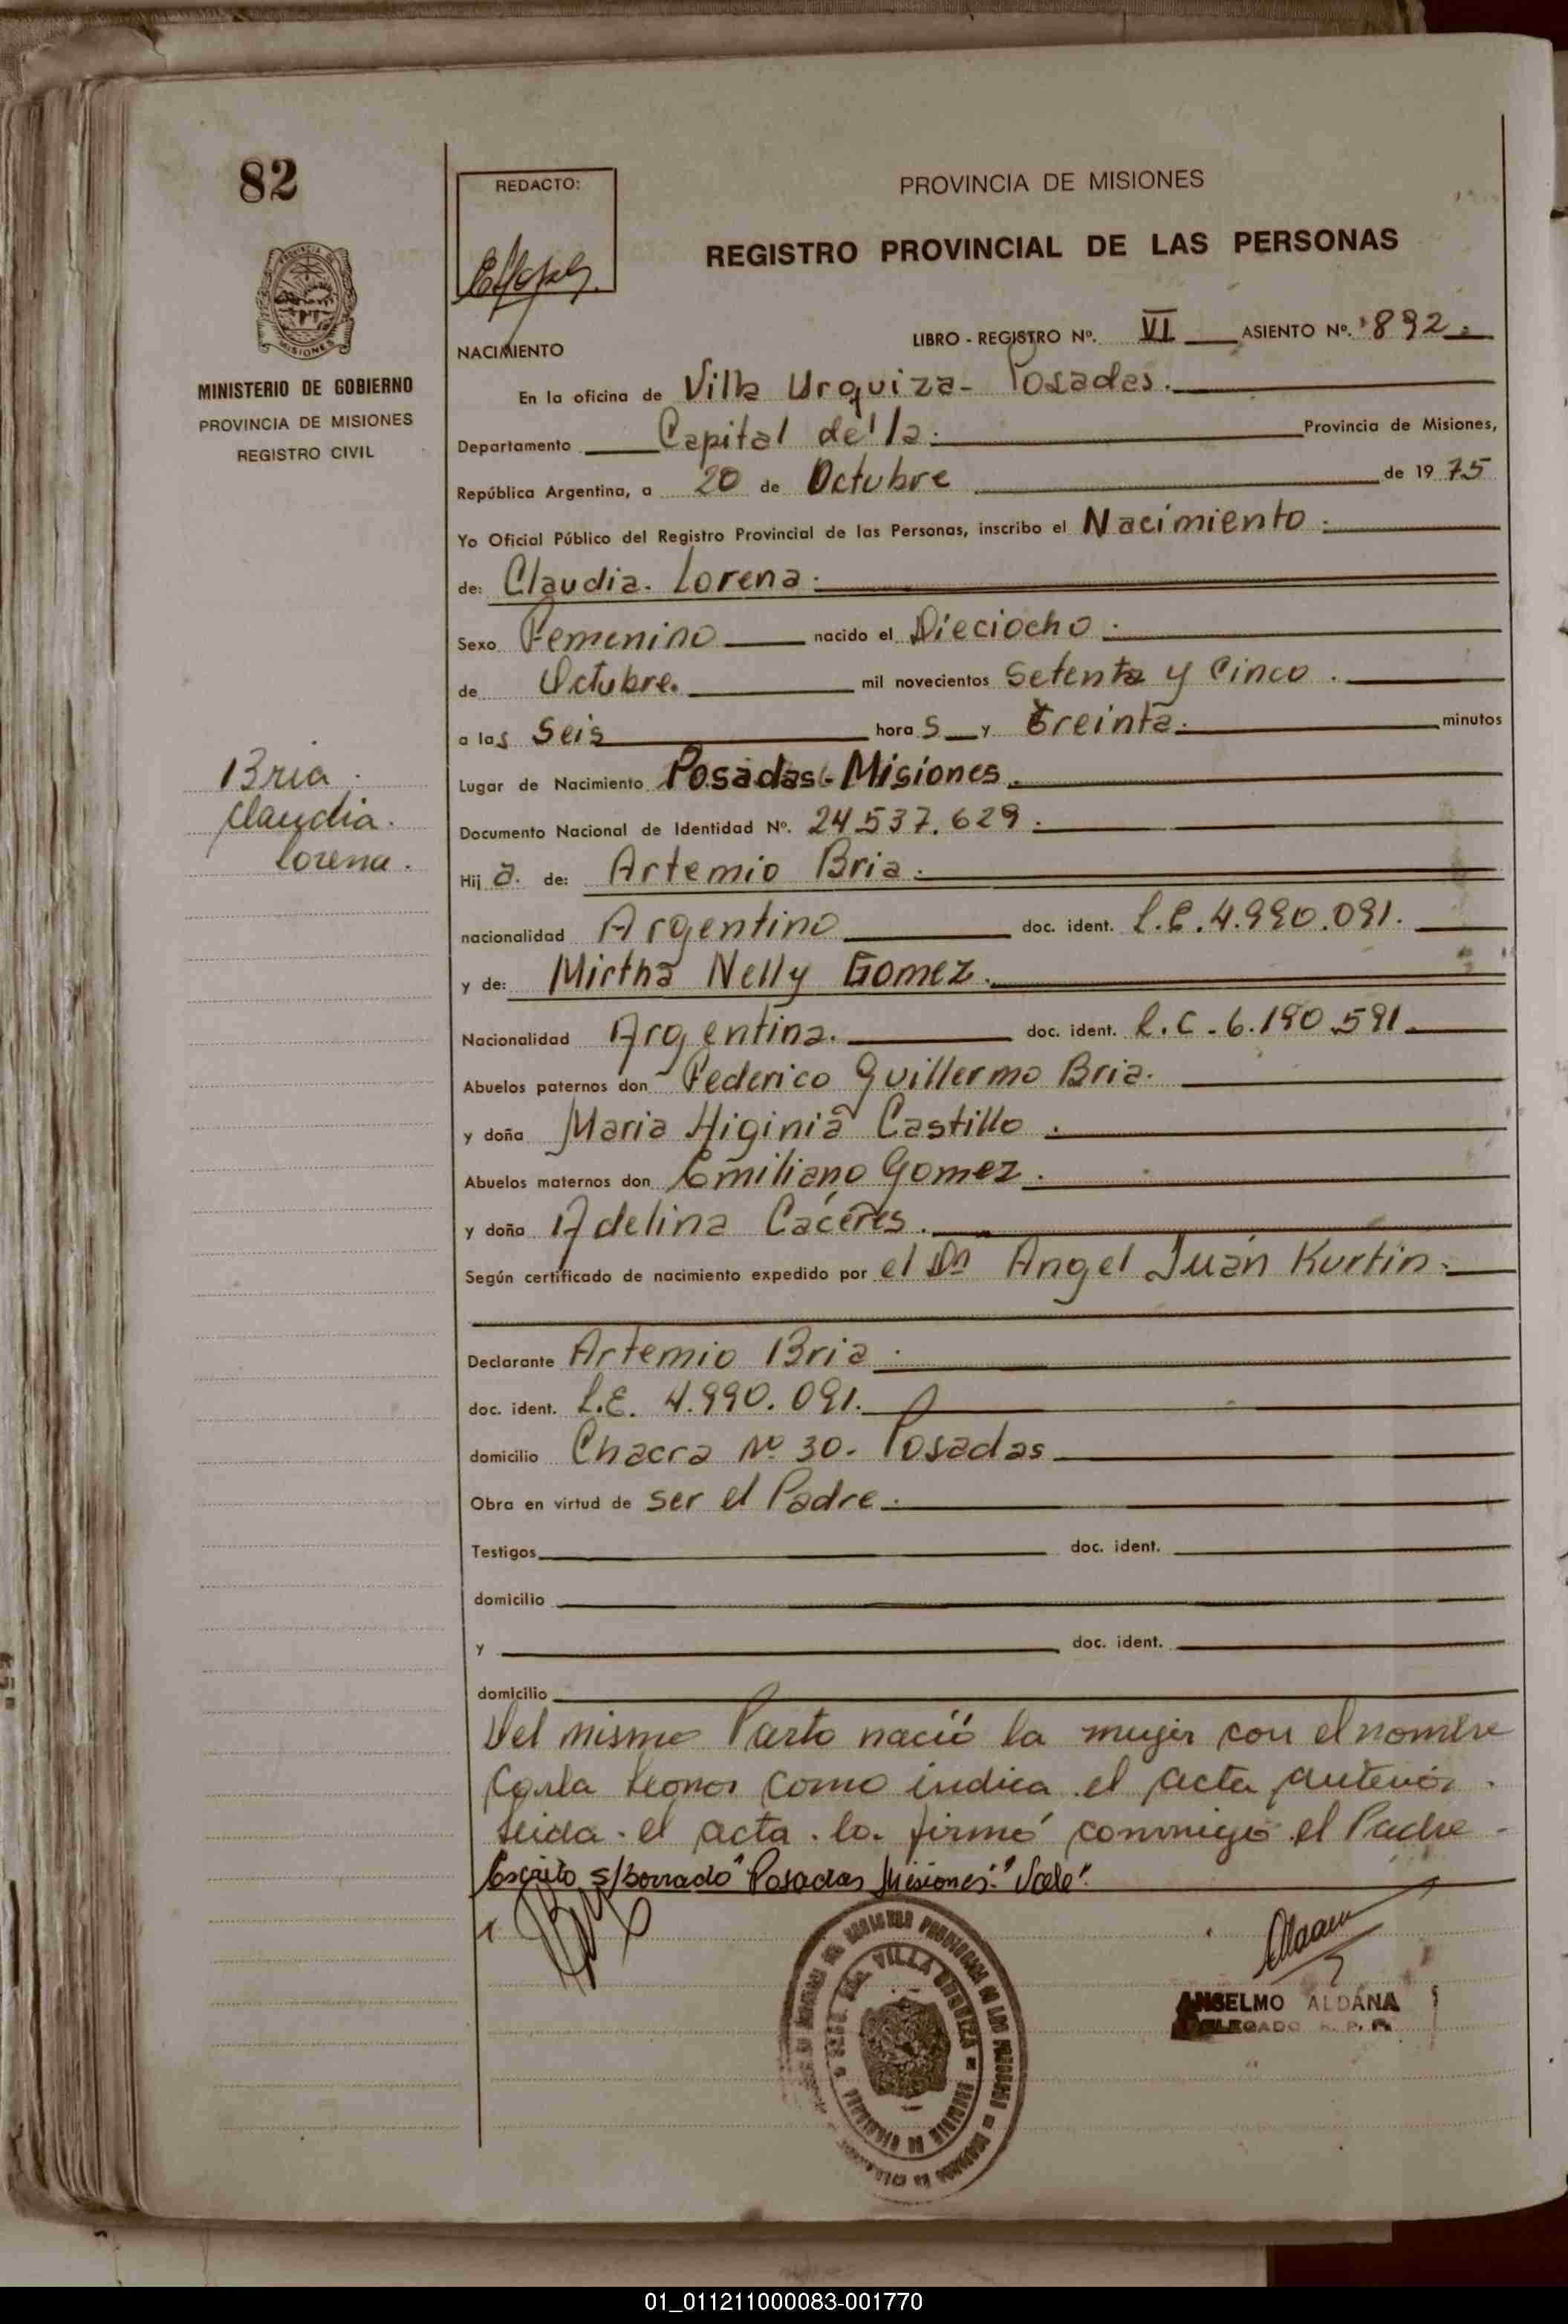 82
REDACTO:
PROVINCIA DE MISIONES
REGISTRO PROVINCIAL DE LAS PERSONAS
MISIONES
MINISTERIO DE GOBIERNO
PROVINCIA DE MISIONES
REGISTRO CIVIL
LIBRO - REGISTRO Nº. VI ASIENTO Nº. 1892
NACIMIENTO
En la oficina de Villa Urquiza - Posadas.
Departamento Capital de la. Provincia de Misiones,
República Argentina, a 20 de Octubre de 1975
Yo Oficial Público del Registro Provincial de las Personas, inscribo el Nacimiento.
de: Claudia. Lorena.
Sexo Femenino nacido el Dieciocho.
de Octubre. mil novecientos setenta y Cinco.
a las seis horas y treinta. minutos
Bria.
Claudia.
Lorena.
Lugar de Nacimiento Posadas - Misiones.
Documento Nacional de Identidad Nº. 24.537.629.
Hija. de: Artemio Bria.
nacionalidad Argentino doc. ident. L.E. 4.990.091.
y de: Mirtha Nelly Gomez.
Nacionalidad Argentina. doc. ident. L.C. 6.190.591.
Abuelos paternos don Federico Guillermo Bria.
y doña Maria Higinia Castillo.
Abuelos maternos don Emiliano Gomez.
y doña Adelina Caceres.
Según certificado de nacimiento expedido por el Dr Angel Juan Kurtin.
Declarante Artemio Bria.
doc. ident. L.E. 4.990.091.
domicilio Chacra Nº 30. Posadas
Obra en virtud de ser el Padre.
Testigos doc. ident.
domicilio
y doc. ident.
domicilio
Del mismo Parto nació la mujer con el nombre
Carla Leonor como indica el acta anterior.
Leida. el acta. la. firmó conmigo el Padre.
Escrito s/borrado "Posadas Misiones." "Vale".
VILLA URQUIZA
ANSELMO ALDANA
DELEGADO R. P. P.
01_011211000083-001770